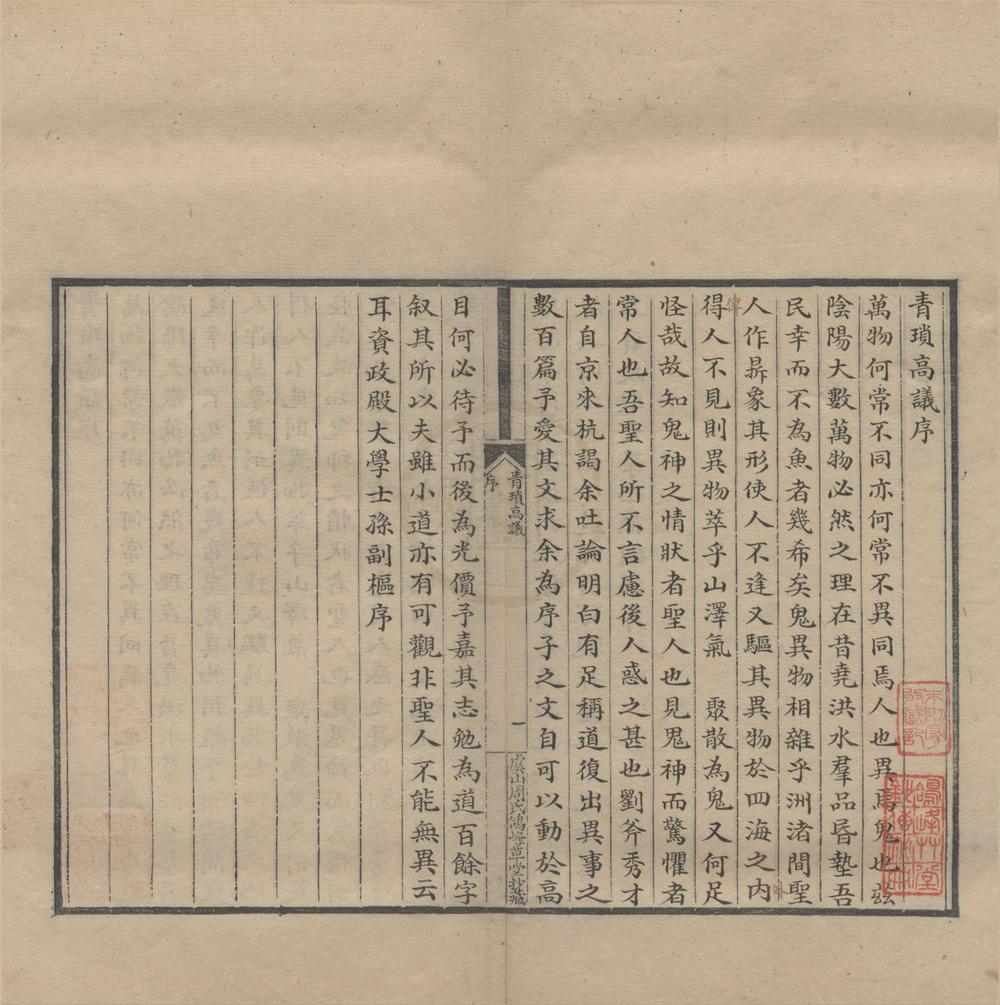 青瑣高議序
萬物何常不同亦何常不異同焉人也異焉鬼也玆
陰陽大數萬物必然之理在昔堯洪水羣品昏墊吾
民幸而不為魚者幾希矣鬼異物相雜乎洲渚間聖
人作鼎象其形使人不逢又驅其異物於四海之內
外
得人不見則異物萃乎山澤氣　聚散為鬼又何足
怪哉故知鬼神之情狀者聖人也見鬼神而驚懼者
常人也吾聖人所不言慮後人惑之甚也劉斧秀才
者自京來杭謁余吐論明白有足稱道復出異事之
數百篇予愛其文求余為序子之文自可以動於高
青瑣高議
序
一
虞山周氏鴿峰草堂抄藏
目何必待予而後為光價予嘉其志勉為道百餘字
叙其所以夫雖小道亦有可觀非聖人不能無異云
耳資政殿大學士孫副樞序